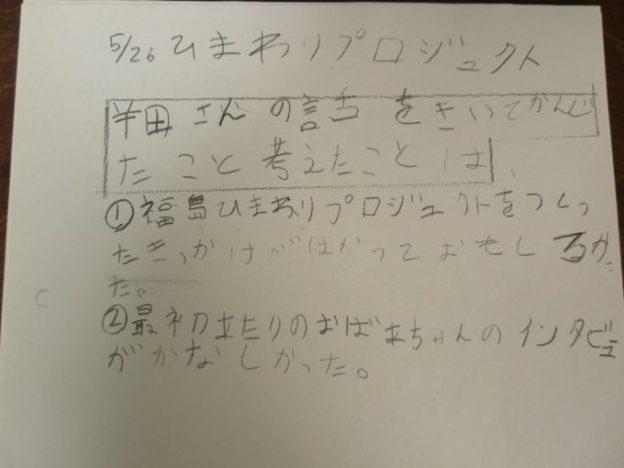 5/26 ひまわりプロジェクト
半田さんの話をきいてかんじ
たこと考えたことは、
①福島ひまわりプロジェクトをつくっ
たきっかけがわかっておもしろかっ
た。
②最初あたりのおばあちゃんのインタビュー
がかなしかった。